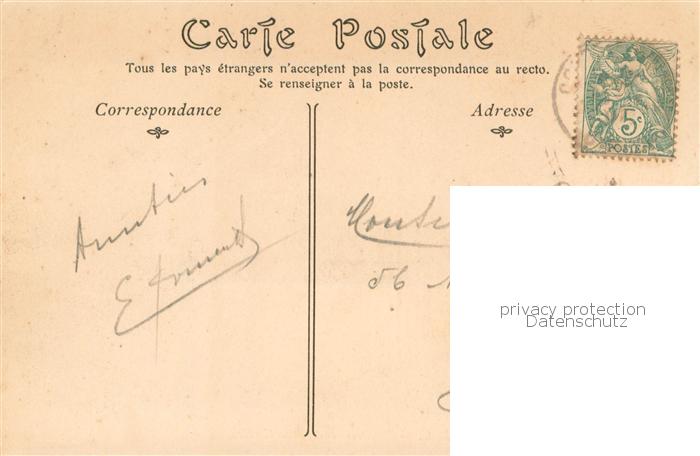 Carte Postale
Tous les pays étrangers n'acceptent pas la correspondance au recto.
Se renseigner à la poste.
Correspondance
Adresse
5c
POSTES
Amitiés
56
privacy protection
Datenschutz